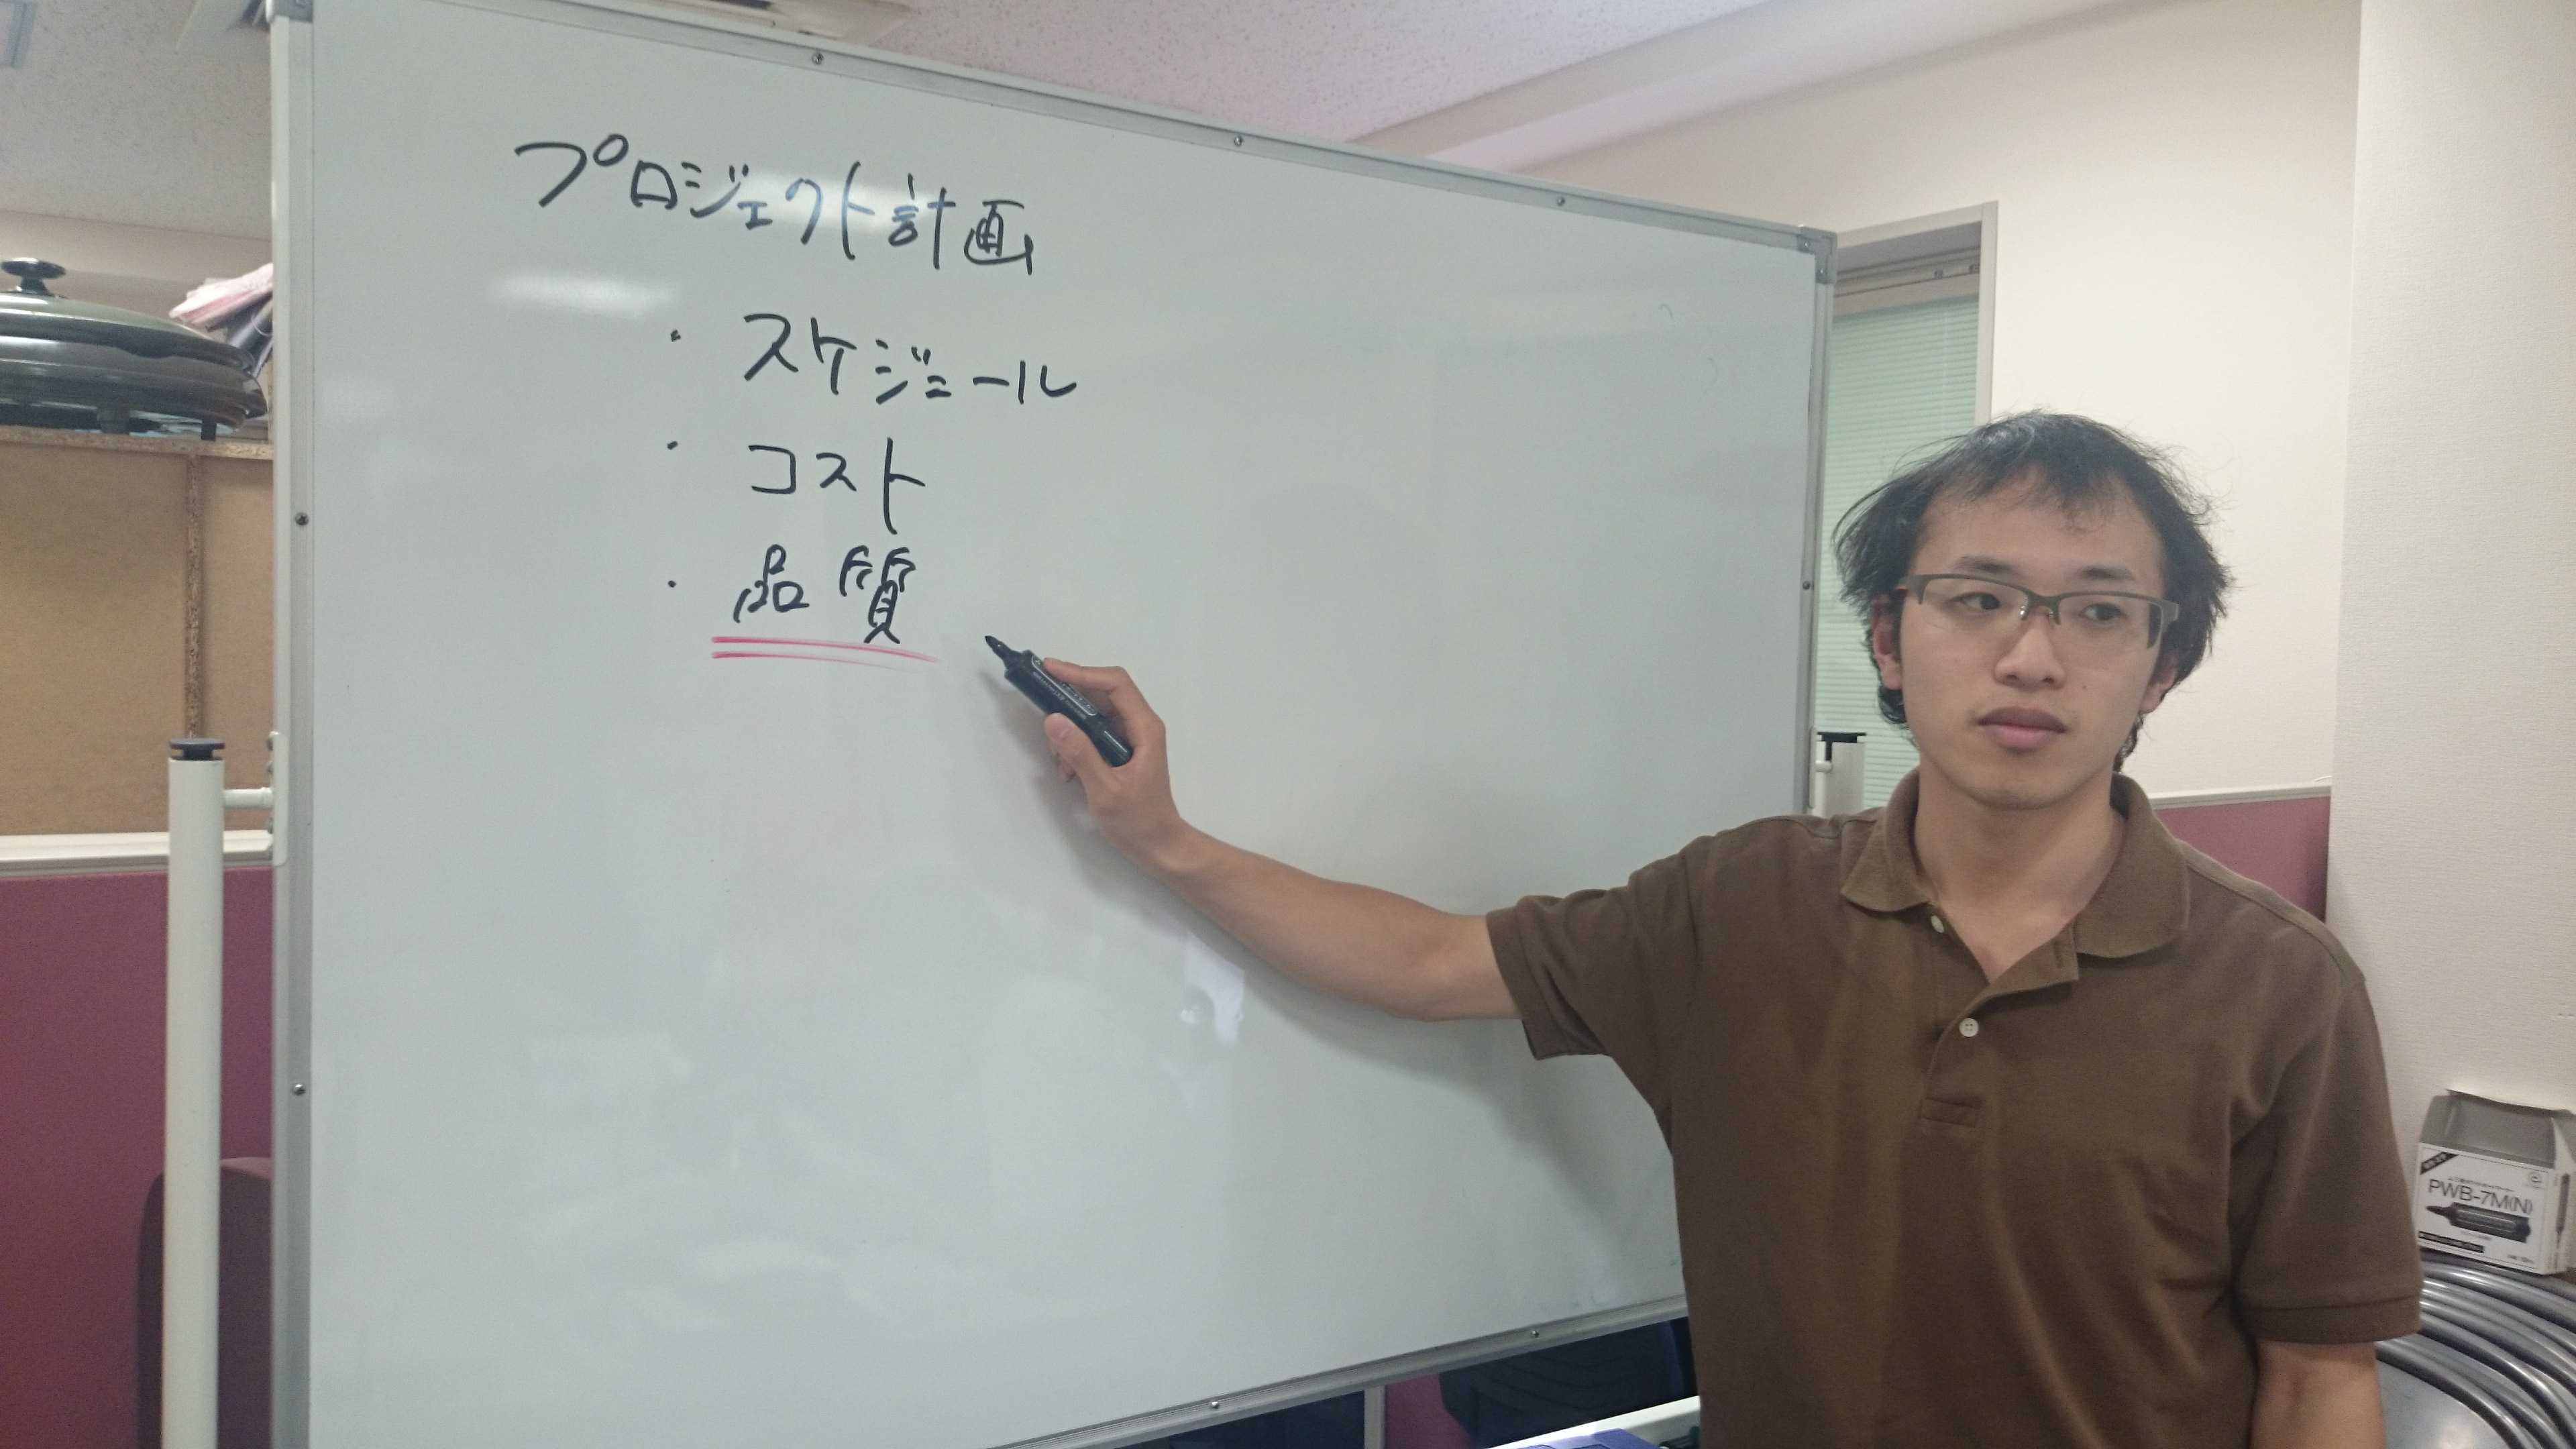 プロジェクト計画
・スケジュール
・コスト
・品質
PWB-7M(N)